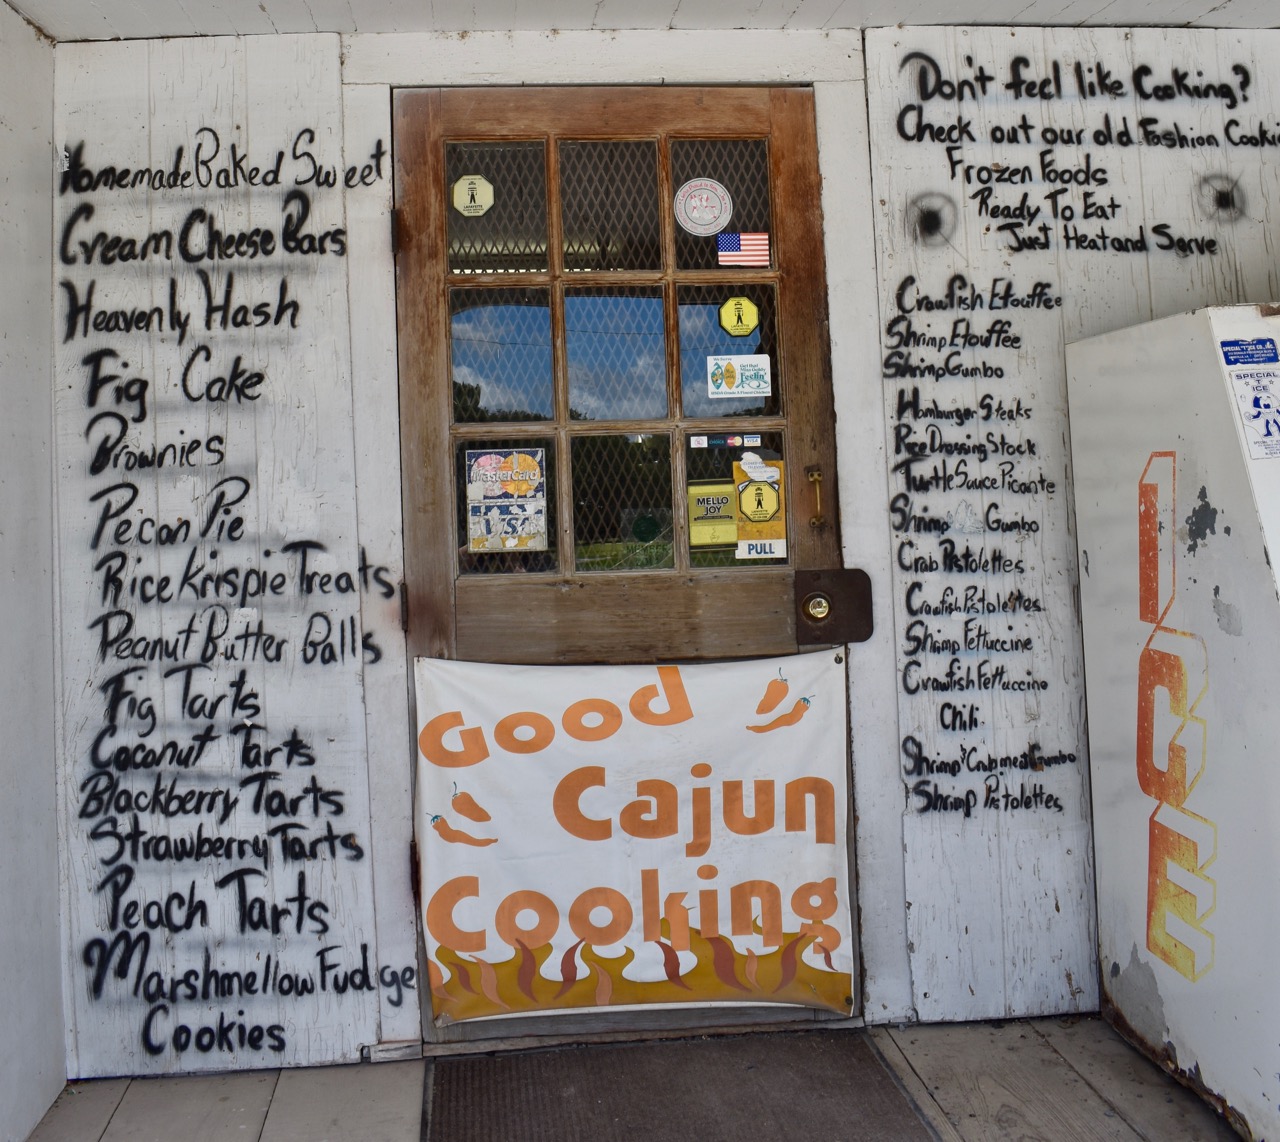 Homemade Baked Sweet
Cream Cheese Bars
Heavenly Hash
Fig Cake
Brownies
Pecan Pie
Rice Krispie Treats
Peanut Butter Balls
Fig Tarts
Coconut Tarts
Blackberry Tarts
Strawberry Tarts
Peach Tarts
Marshmellow Fudge
Cookies
LAFAYETTE
We Serve
Feelin'
MasterCard
VISA
VISA
MELLO
JOY
PULL
Good
Cajun
Cooking
Don't feel like Cooking?
Check out our old Fashion Cookin
Frozen Foods
Ready To Eat
Just Heat and Serve
Crawfish Etouffee
Shrimp Etouffee
Shrimp Gumbo
Hamburger Steaks
Rice Dressing Stock
Turtle Sauce Picante
Shrimp Gumbo
Crab Pistolettes
Crawfish Pistolettes
Shrimp Fettuccine
Crawfish Fettuccine
Chili
Shrimp & Crabmeat Gumbo
Shrimp Pistolettes
ICE
SPECIAL
T
ICE